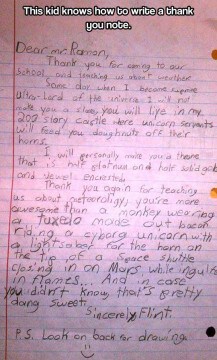 This kid knows how to write a thank
you note.
Dear mr. Ramon,
Thank you for coming to our
school and teaching us about weather
Some day when I become supreme
Ultra-Lord of the universe I will not
make you a slave, you will live in my
200 story castle where unicorn servants
will feed you doughnuts off their
horns.
I will personally make you a throne
that is half platnum and half solid gold
and jewel encrusted.
Thank you again for teaching
us about meteoroligy, you're more
awesome than a monkey wearing
a tuxedo made out bacon
riding a cyborg unicorn with
a lightsaber for the horn on
the tip of a space shuttle
closing in on Mars while ingulfed
in flames... And in case
you didn't know, that's pretty
dang sweet.
Sincerely, Flint.
P.S. Look on back for drawing